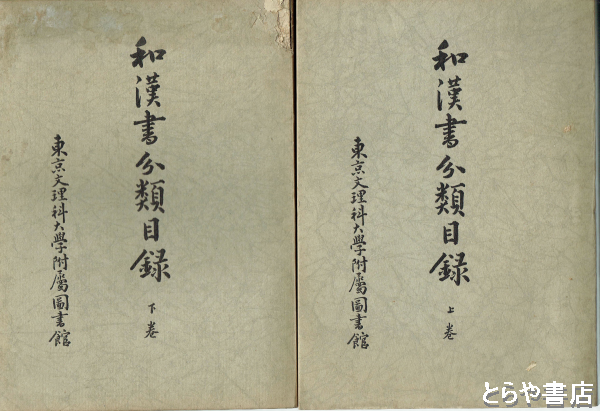 和漢書分類目録
上巻
東京文理科大學附屬圖書館
和漢書分類目録
下巻
東京文理科大學附屬圖書館
とらや書店